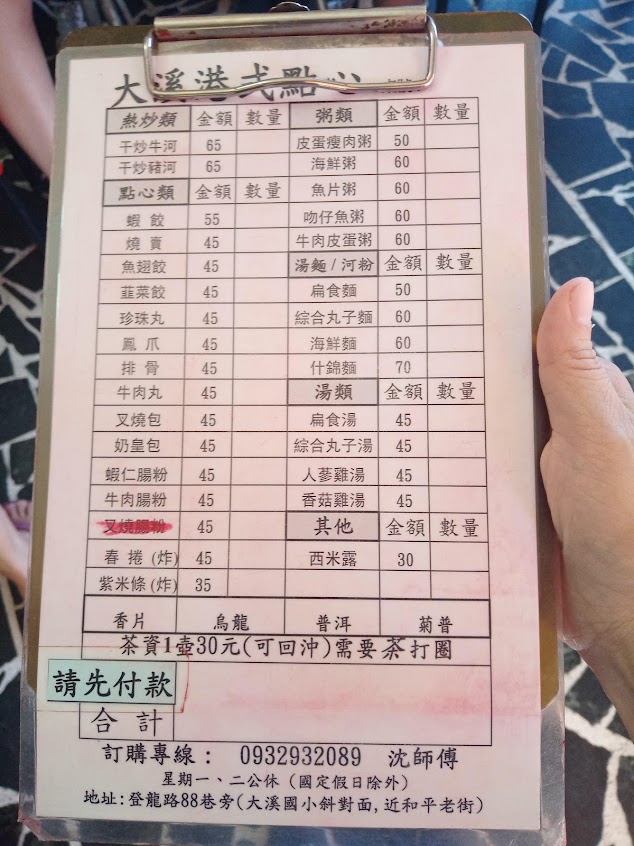 大溪港式點心
熱炒類 金額 數量 粥類 金額 數量
干炒牛河 65 皮蛋瘦肉粥 50
干炒豬河 65 海鮮粥 60
點心類 金額 數量 魚片粥 60
蝦餃 55 吻仔魚粥 60
燒賣 45 牛肉皮蛋粥 60
魚翅餃 45 湯麵/河粉 金額 數量
韮菜餃 45 扁食麵 50
珍珠丸 45 綜合丸子麵 60
鳳爪 45 海鮮麵 60
排骨 45 什錦麵 70
牛肉丸 45 湯類 金額 數量
叉燒包 45 扁食湯 45
奶皇包 45 綜合丸子湯 45
蝦仁腸粉 45 人蔘雞湯 45
牛肉腸粉 45 香菇雞湯 45
叉燒腸粉 45 其他 金額 數量
春捲(炸) 45 西米露 30
紫米條(炸) 35
香片 烏龍 普洱 菊普
茶資1壺30元(可回沖)需要茶打圈
請先付款
合計
訂購專線： 0932932089 沈師傅
星期一、二公休(國定假日除外)
地址:登龍路88巷旁(大溪國小斜對面,近和平老街)